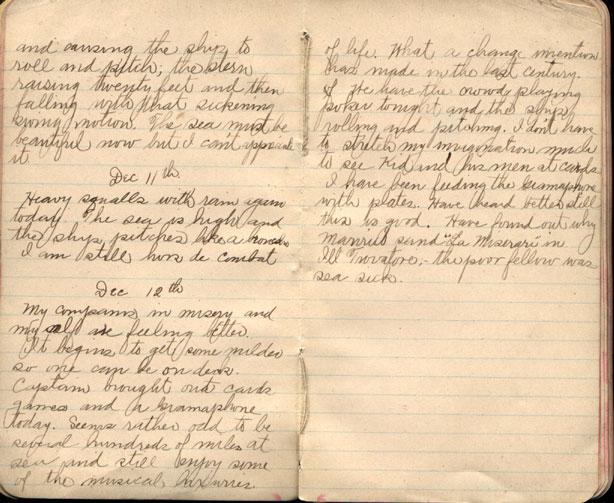 and causing the ship to
roll and pitch; the stern
raising twenty feet and then
falling with that sickening
swing motion. The sea must be
beautiful now but I cant appreciate
it
Dec 11th
Heavy squalls with rain again
today. The sea is high and
the ship pitches like a broncho
I am still hors de combat
Dec 12th
My companis in misery and
my self are feeling better.
It begins to get some milder
so one can be on deck.
Captain brought out cards
games and a gramaphone
today. Seems rather odd to be
several hundreds of miles at
sea and still enjoy some
of the musical luxuries
of life. What a change invention
has made in the last century.
We have the crowd playing
poker tonight and the ship
rolling and pitching. I dont have
to stretch my imagination much
to see Kid and his men at cards.
I have been feeding the gramaphone
with plates. Have heard better still
this is good. Have found out why
Manrico sand "La Miserari" in
Ill Trovatore;- the poor fellow was
sea sick.